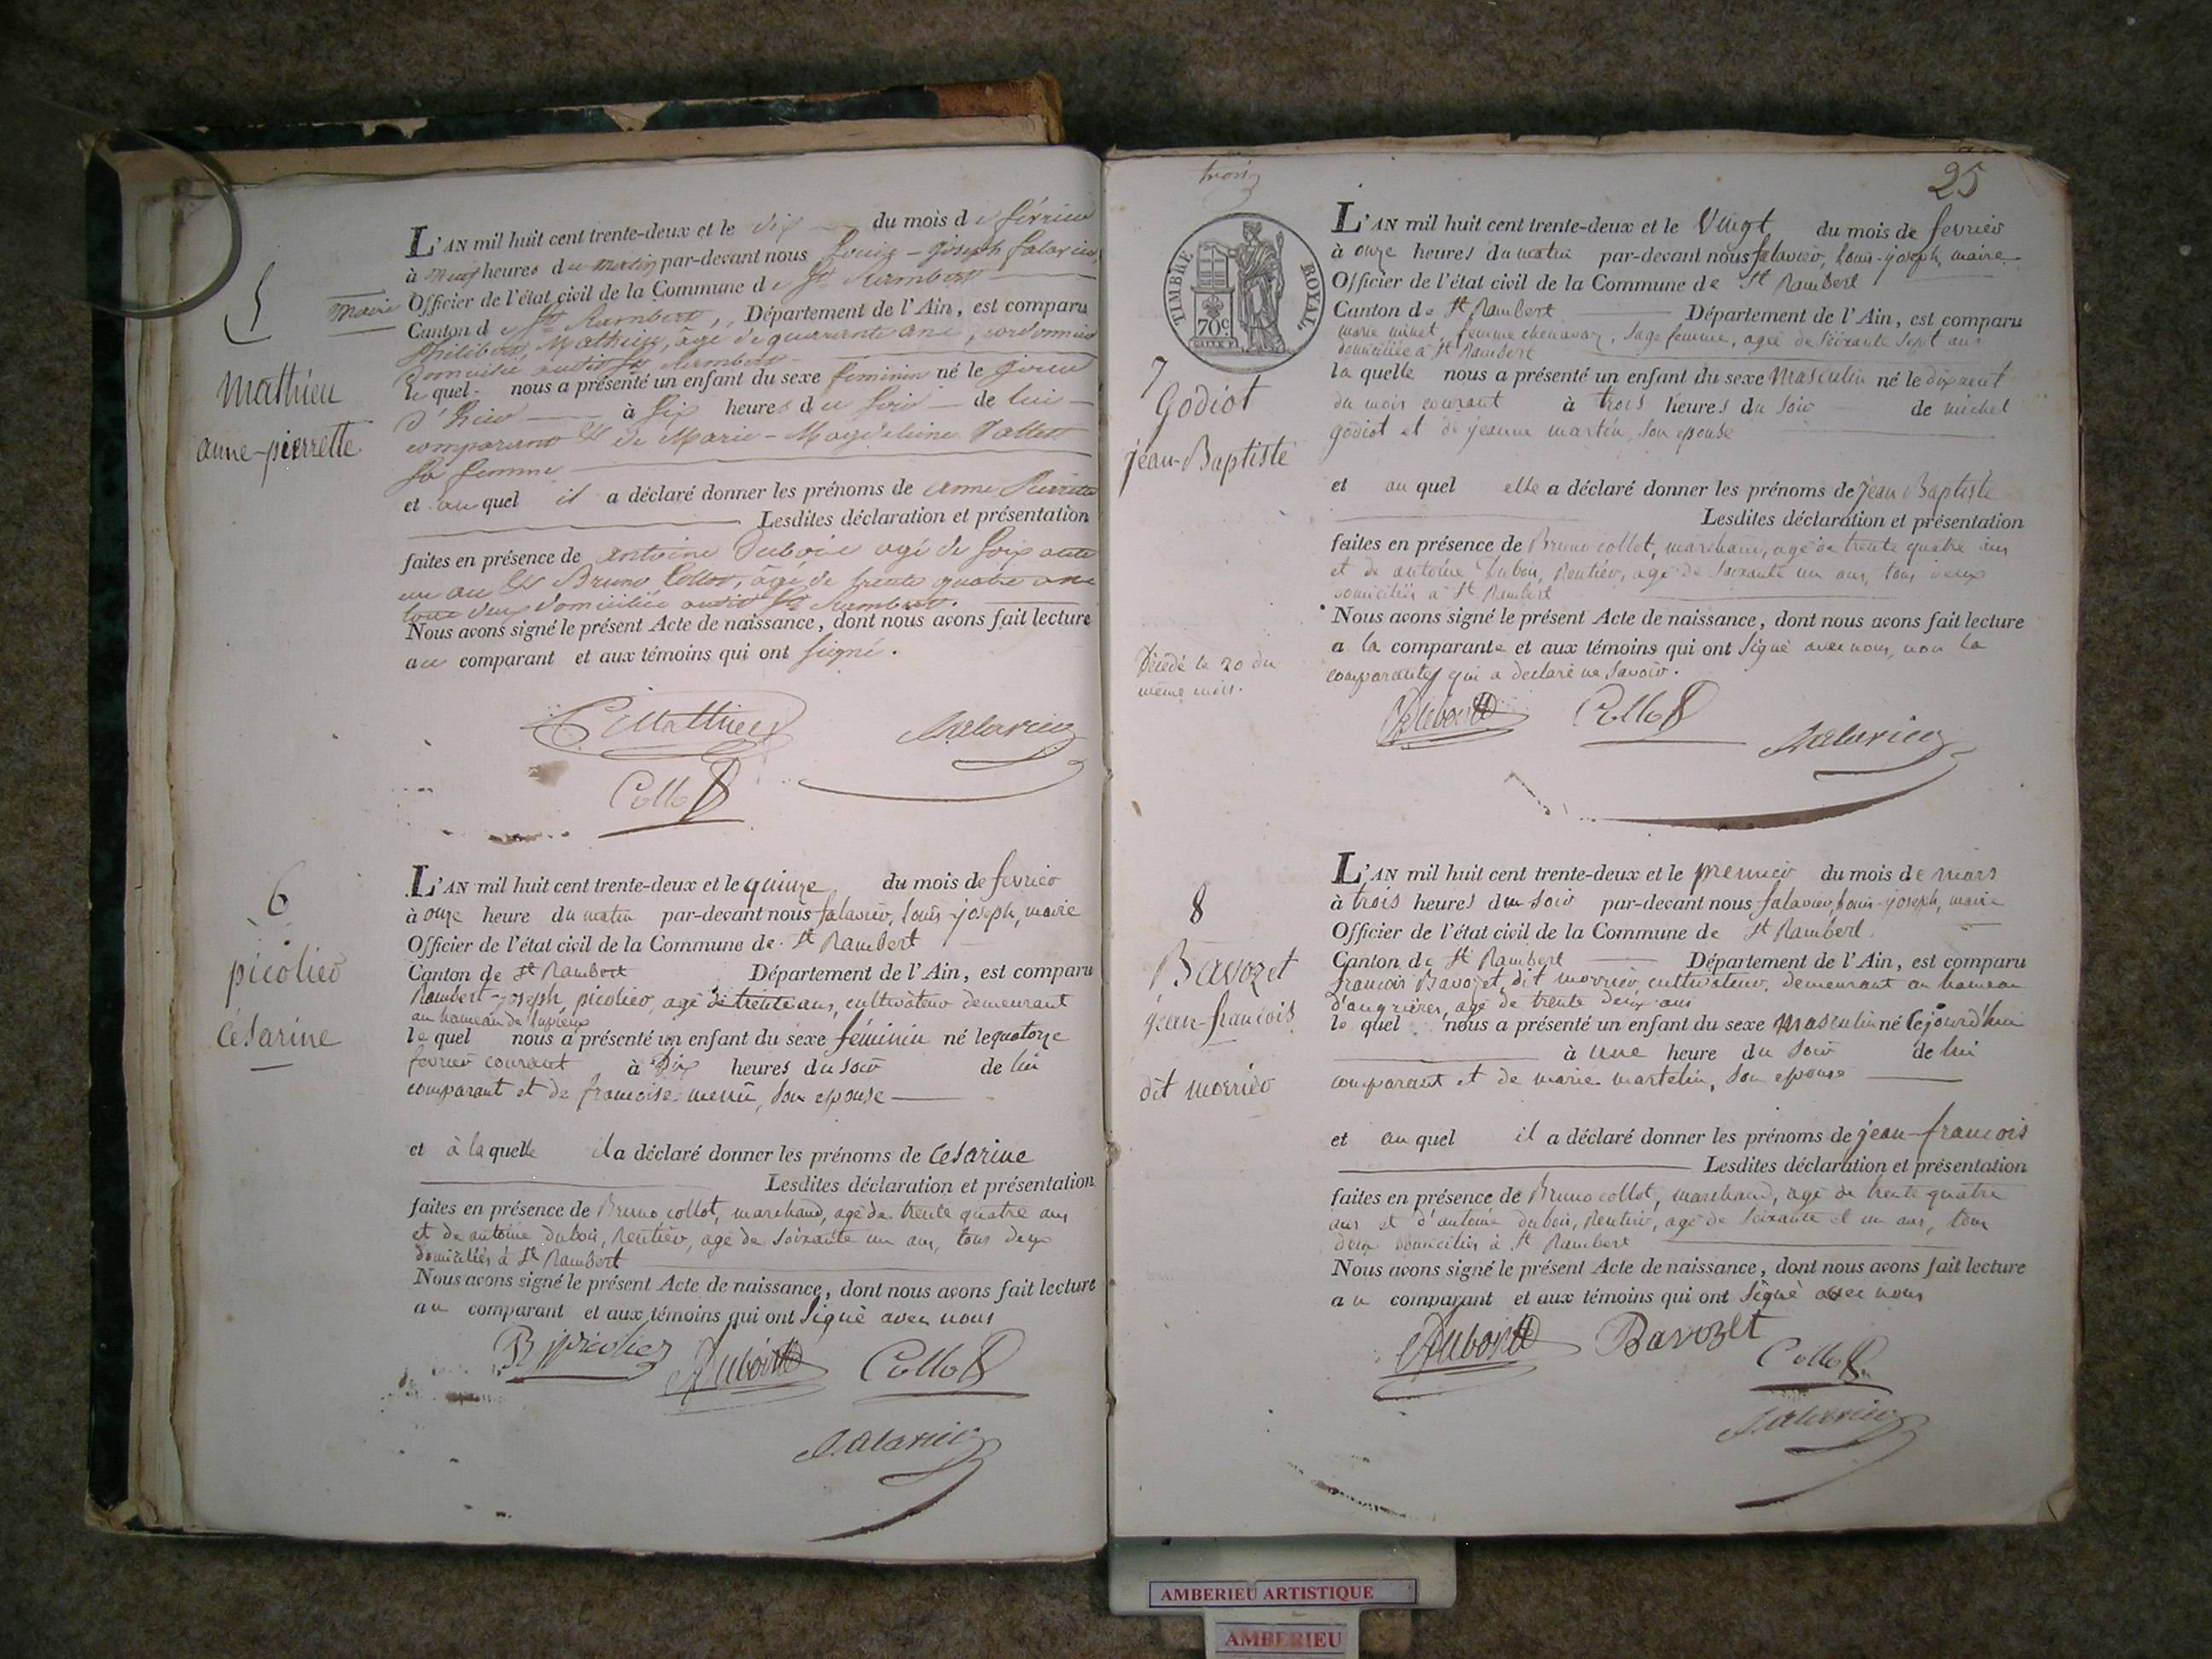 5
Mathieu
anne-pierrette
L'AN mil huit cent trente-deux et le dix du mois de février
à neuf heures du matin par-devant nous Louis-Joseph Salavier
Maire Officier de l'état civil de la Commune de St Rambert
Canton de St Rambert, Département de l'Ain, est comparu
Philibert Mathieu, âgé de quarante ans, cordonnier
domicilié audit St Rambert
lequel nous a présenté un enfant du sexe feminin né le jour
d'hier à six heures du soir de lui
comparant et de Marie-Magdeleine
sa femme
et auquel il a déclaré donner les prénoms de anne Pierrette
Lesdites déclaration et présentation
faites en présence de antoine Dubois agé de soixante
un an et Bruno Collot, âgé de trente quatre ans
tous deux domiciliés audit St Rambert.
Nous avons signé le présent Acte de naissance, dont nous avons fait lecture
au comparant et aux témoins qui ont signé.
Mathieu Salavier
Collot
6
picolier
césarine
L'AN mil huit cent trente-deux et le quinze du mois de fevrier
à onze heure du matin par-devant nous Salavier, Louis-joseph, maire
Officier de l'état civil de la Commune de St Rambert
Canton de St Rambert Département de l'Ain, est comparu
Rambert-joseph picolier, agé de trente ans, cultivateur demeurant
au hameau de
le quel nous a présenté un enfant du sexe féminin né le quatorze
fevrier courant à dix heures du soir de lui
comparant et de francoise, son epouse
et à laquelle il a déclaré donner les prénoms de césarine
Lesdites déclaration et présentation
faites en présence de Bruno collot, marchand, agé de trente quatre ans
et de antoine dubois, Rentier, agé de soixante un ans, tous deux
domiciliés à St Rambert
Nous avons signé le présent Acte de naissance, dont nous avons fait lecture
au comparant et aux témoins qui ont signé avec nous
picolier Dubois Collot
Salavier
trois
25
TIMBRE ROYAL
70c
7
Godiot
jean-Baptiste
Décédé le 20 du
même mois.
L'AN mil huit cent trente-deux et le vingt du mois de fevrier
à onze heures du matin par-devant nous Salavier, Louis-joseph, maire
Officier de l'état civil de la Commune de St Rambert
Canton de St Rambert Département de l'Ain, est comparu
marie minet, femme chenavaz, sage femme, agée de soixante sept ans
domiciliée à St Rambert
la quelle nous a présenté un enfant du sexe masculin né le dixneuf
du mois courant à trois heures du soir de michel
godiot et de jeanne martin, son epouse
et au quel elle a déclaré donner les prénoms de jean Baptiste
Lesdites déclaration et présentation
faites en présence de Bruno collot, marchand, agé de trente quatre ans
et de antoine dubois, Rentier, agé de soixante un ans, tous deux
domiciliés à St Rambert
Nous avons signé le présent Acte de naissance, dont nous avons fait lecture
a la comparante et aux témoins qui ont signé avec nous, non la
comparante, qui a declaré ne savoir.
Dubois Collot
Salavier
8
Bavozet
jean-francois
dit morrier
L'AN mil huit cent trente-deux et le premier du mois de mars
à trois heures du soir par-devant nous Salavier, Louis-joseph, maire
Officier de l'état civil de la Commune de St Rambert
Canton de St Rambert Département de l'Ain, est comparu
francois Bavozet, dit morrier, cultivateur, demeurant au hameau
d'angrières, agé de trente deux ans
le quel nous a présenté un enfant du sexe masculin né cejourd'hui
à une heure du soir de lui
comparant et de marie martelin, son epouse
et au quel il a déclaré donner les prénoms de jean-francois
Lesdites déclaration et présentation
faites en présence de Bruno collot, marchand, agé de trente quatre
ans et d'antoine dubois, Rentier, agé de soixante et un ans, tous
deux domiciliés à St Rambert
Nous avons signé le présent Acte de naissance, dont nous avons fait lecture
au comparant et aux témoins qui ont signé avec nous
Dubois Bavozet
Collot
Salavier
AMBERIEU ARTISTIQUE
AMBERIEU